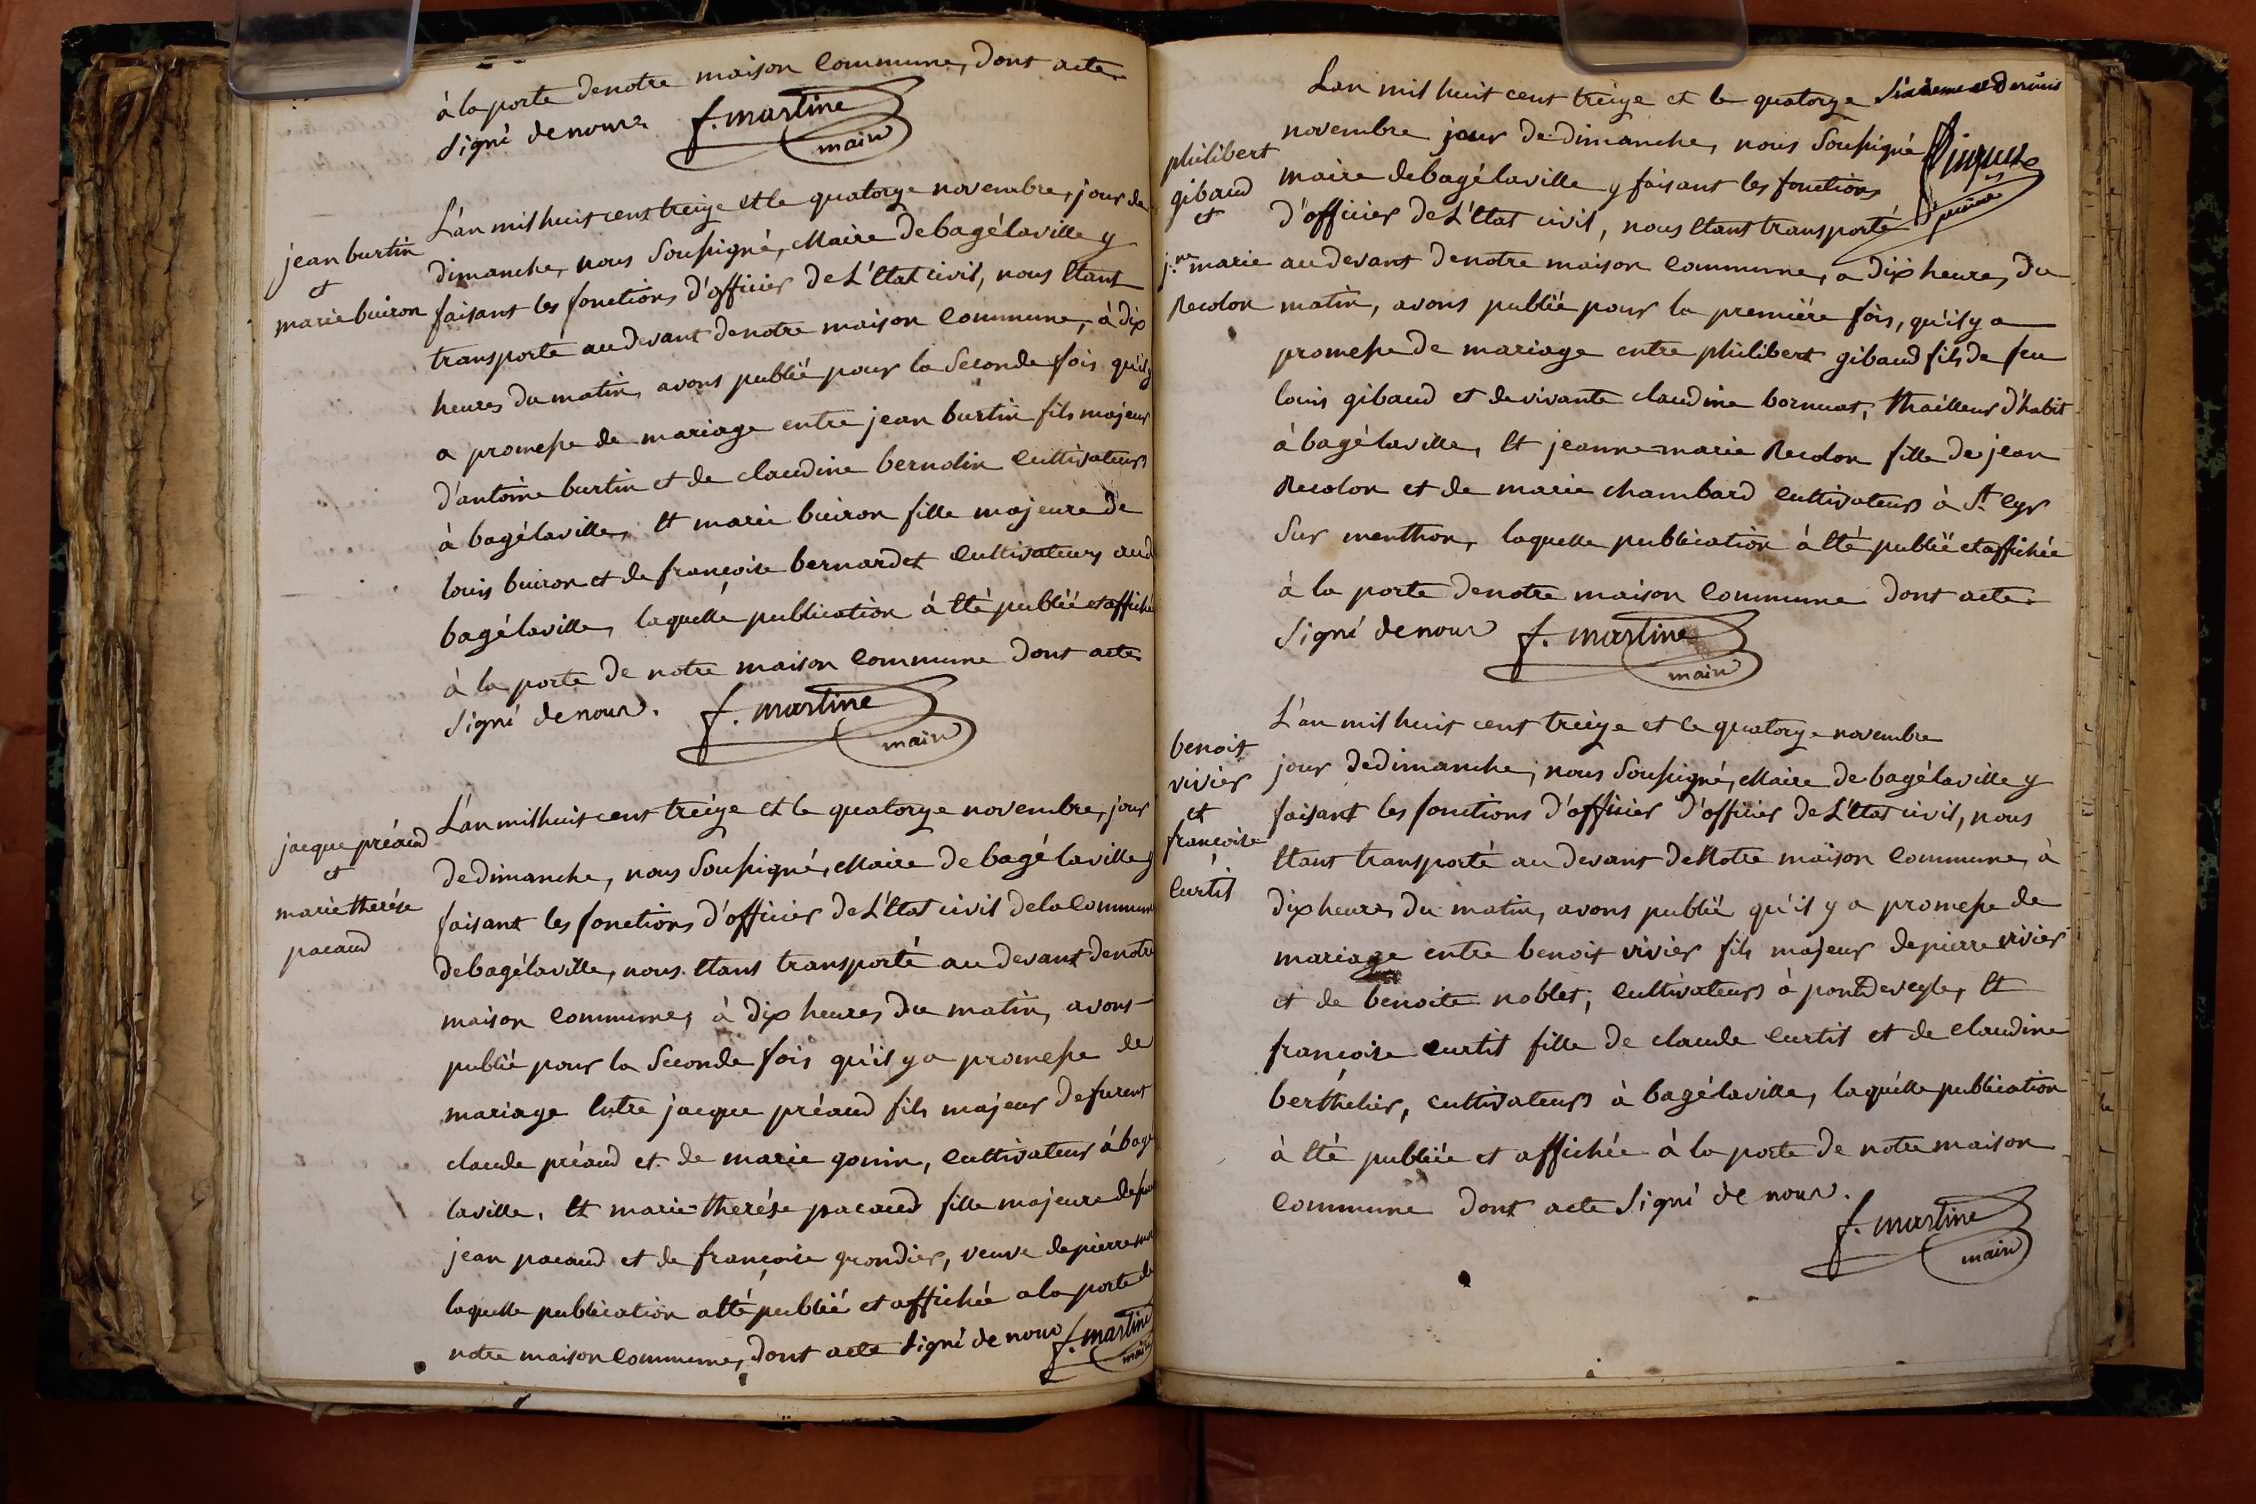 à la porte de notre maison commune, dont acte
signé de nous. f. martine
main
jean burtin
et
marie buiron
L'an mil huit cent treize et le quatorze novembre, jour de
dimanche, nous soussigné, Maire de bagélaville y
faisant les fonctions d'officier de L'Etat civil, nous Etant
transporté au devant de notre maison commune, à dix
heures du matin, avons publié pour la seconde fois qu'il y
a promesse de mariage entre jean burtin fils majeur
d'antoine burtin et de claudine bernolin cultivateurs
à bagélaville, Et marie buiron fille majeure de
louis buiron et de françoise bernardet cultivateurs aud
bagélaville, laquelle publication à Eté publiée et affichée
à la porte de notre maison commune dont acte
signé de nous. f. martine
main
jacque préaud
et
marie therése
pacaud
L'an mil huit cent treize et le quatorze novembre, jour
de dimanche, nous soussigné, Maire de bagélaville y
faisant les fonctions d'officier de L'Etat civil de la commune
de bagélaville, nous Etant transporté au devant de notre
maison commune, à dix heures du matin, avons
publié pour la seconde fois qu'il y a promesse de
mariage Entre jacque préaud fils majeur de furent
claude préaud et de marie gonin, cultivateur à bagé
laville, Et marie-therése pacaud fille majeure de
jean pacaud et de françoise grondier, veuve de pierre
laquelle publication a Eté publié et affichée a la porte de
notre maison commune, dont acte signé de nous f. martine
main
L'an mil huit cent treize et le quatorze sixième et dernier
philibert
gibaud
et
j.ne marie
Recolon
novembre jour de dimanche, nous soussigné
maire de bagélaville y faisant les fonctions
d'officier de L'Etat civil, nous Etant transporté
au devant de notre maison commune, a dix heures, du
matin, avons publié pour la première fois, qu'il y a
promesse de mariage entre philibert gibaud fils de feu
louis gibaud et de vivante claudine bornuat, thailleur d'habit
à bagélaville, Et jeanne-marie Recolon fille de jean
Recolon et de marie chambard cultivateurs à St. Cyr
sur menthon, laquelle publication à Eté publiée et affichée
à la porte de notre maison commune dont acte
signé de nous f. martine
main
benoit
vivier
et
françoise
Curtil
L'an mil huit cent treize et le quatorze novembre
jour de dimanche, nous soussigné, Maire de bagélaville y
faisant les fonctions d'officier d'officier de L'Etat civil, nous
Etant transporté au devant de Notre maison commune, à
dix heures du matin, avons publié qu'il y a promesse de
mariage entre benoit vivier fils majeur de pierre vivier
et de benoite noblet, cultivateurs à pontdevesle, Et
françoise curtil fille de claude curtil et de claudine
berthelier, cultivateurs à bagélaville, laquelle publication
à Eté publiée et affichée à la porte de notre maison
commune dont acte signé de nous.
f. martine
main